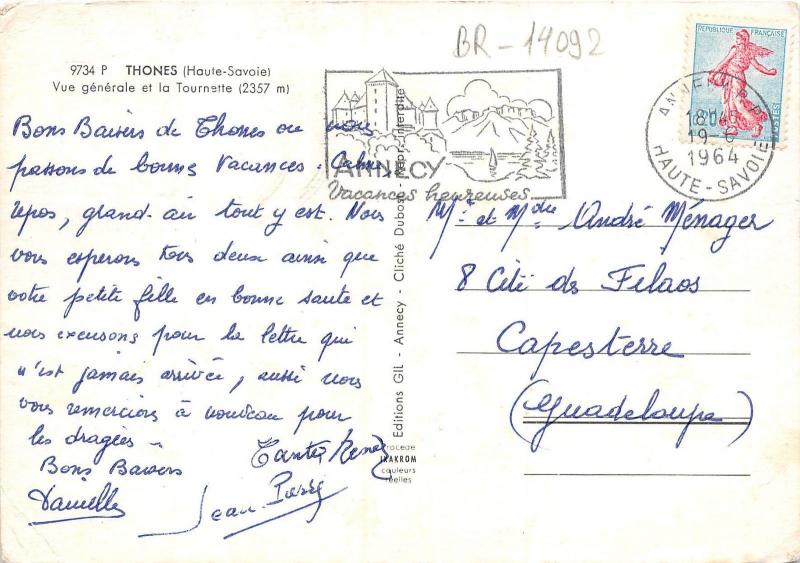 BR-14092
9734 P THONES (Haute-Savoie)
Vue générale et la Tournette (2357 m)
Bons Baisers de Thones ou nous
passons de bonnes Vacances. Calme
repos, grand air tout y est. Nous
vous esperons tous deux ainsi que
votre petite fille en bonne sante et
nous excusons pour la lettre qui
n'est jamais arrivée, aussi nous
vous remercions à nouveau pour
les dragées -
Bons Baisers
Tante Renée
Danielle
Jean Pierre
ANNECY
Vacances heureuses
Editions GIL - Annecy - Cliché Dubost - Repr. interdite
Procede
IRAKROM
couleurs
réelles
REPUBLIQUE FRANÇAISE
POSTES
ANNECY
18H45
19-
1964
HAUTE-SAVOIE
Mr et Mdme André Ménager
8 Cité des Filaos
Capesterre
(Guadeloupe)